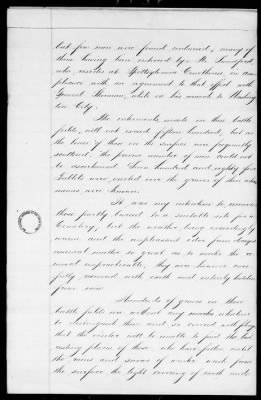 but few men were found uninterred, many of
them having been interred by Mr. Sanford
who resides at Spottsylvania Courthouse, in com-
pliance with an agreement to that effect with
General Sherman, while on his march to Washing-
ton City.
The interments made on this battle
field, will not exceed fifteen hundred, but as
the bones of these on the surface were frequently
scattered, the precise number of men could not
be ascertained. Seven hundred and eighty five
Tablets were erected over the graves of those whose
names are known.
It was my intention to remove
those partly buried to a suitable site for a
Cemetery, but the weather being exceedingly
warm and the unpleasant odor from decayed
animal matter so great as to make the re-
moval impracticable, They were however care-
fully covered with earth and entirely hidden
from view.
Hundreds of graves on these
battle fields are without any marks whatever
to distinguish them and so covered with foliage
that the visitor will be unable to find the last
resting places of those who have fallen, until
the rains and snows of winter wash from
the surface the light covering of earth and